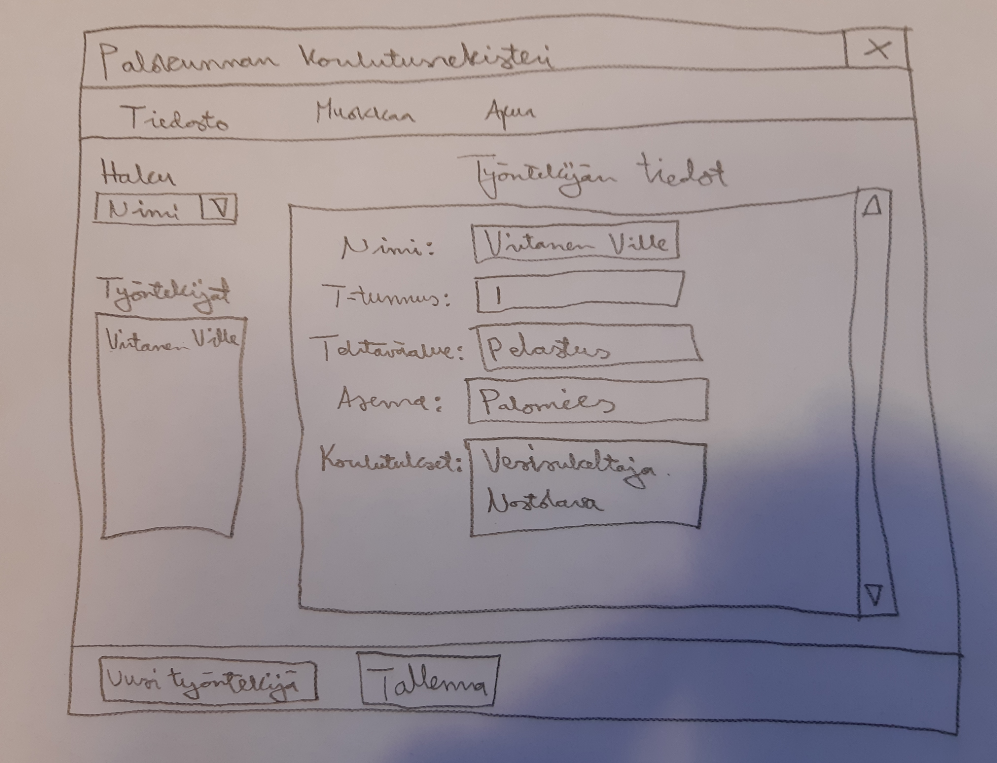 Palokunnan Koulutusrekisteri X
Tiedosto Muokkaa Apua
Haku
Nimi
Työntekijän tiedot
Nimi: Virtanen Ville
T-tunnus: 1
Työntekijät
Virtanen Ville
Tehtäväalue: Pelastus
Asema: Palomies
Koulutukset: Vesisukeltaja
Nostolava
Uusi työntekijä Tallenna